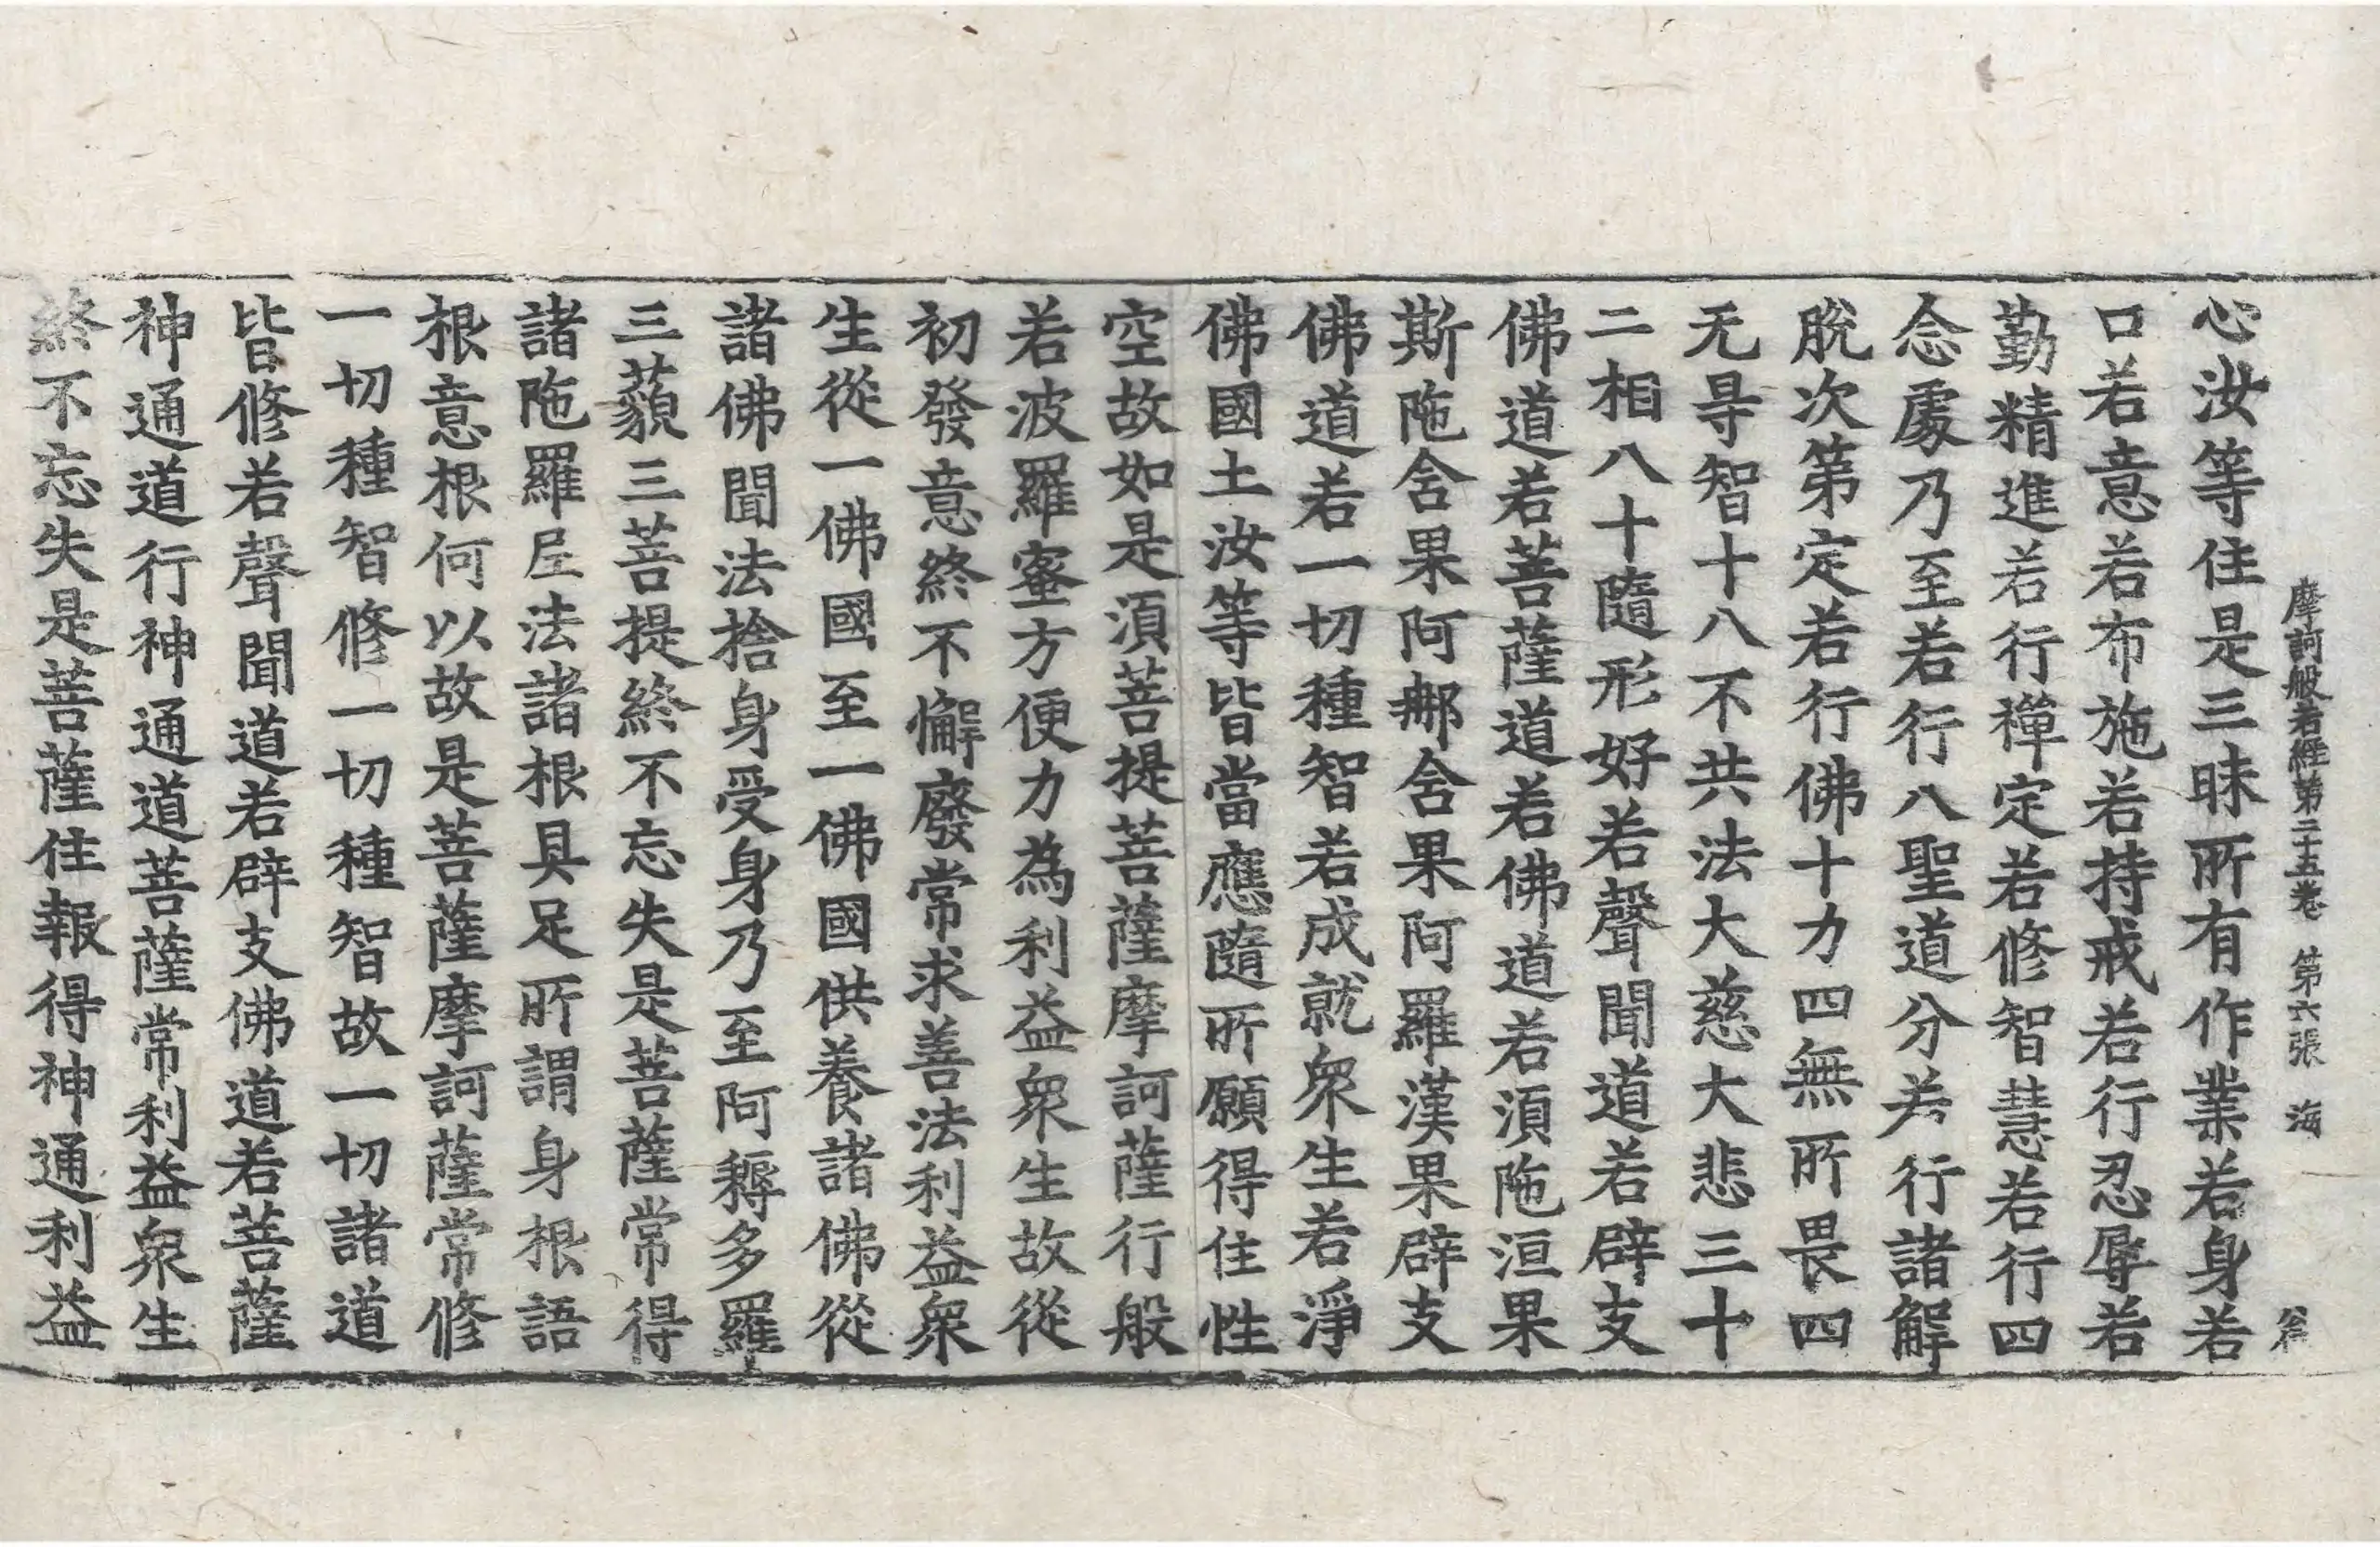 摩訶般若經第二十五卷 第六張 海
心汝等住是三昧所有作業若身若
口若意若布施若持戒若行忍辱若
勤精進若行禪定若修智慧若行四
念處乃至若行八聖道分若行諸解
脫次第定若行佛十力四無所畏四
无㝵智十八不共法大慈大悲三十
二相八十隨形好若聲聞道若辟支
佛道若菩薩道若佛道若須陁洹果
斯陁含果阿那含果阿羅漢果辟支
佛道若一切種智若成就衆生若淨
佛國土汝等皆當應隨所願得住性
空故如是須菩提菩薩摩訶薩行般
若波羅蜜方便力為利益衆生故從
初發意終不懈廢常求善法利益衆
生從一佛國至一佛國供養諸佛從
諸佛聞法捨身受身乃至阿耨多羅
三藐三菩提終不忘失是菩薩常得
諸陁羅𡰱法諸根具足所謂身根語
根意根何以故是菩薩摩訶薩常修
一切種智修一切種智故一切諸道
皆修若聲聞道若辟支佛道若菩薩
神通道行神通道菩薩常利益衆生
終不忘失是菩薩住報得神通利益